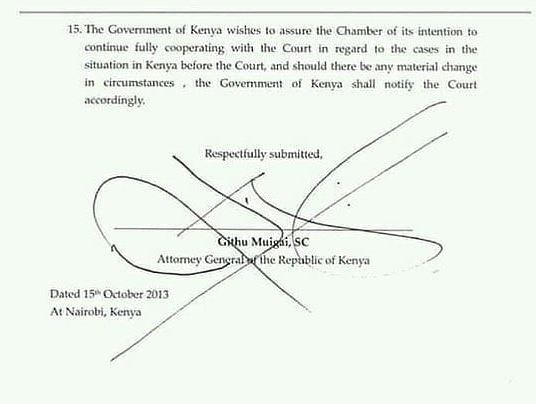 15. The Government of Kenya wishes to assure the Chamber of its intention to
continue fully cooperating with the Court in regard to the cases in the
situation in Kenya before the Court, and should there be any material change
in circumstances , the Government of Kenya shall notify the Court
accordingly.
Respectfully submitted,
Githu Muigai, SC
Attorney General of the Republic of Kenya
Dated 15th October 2013
At Nairobi, Kenya